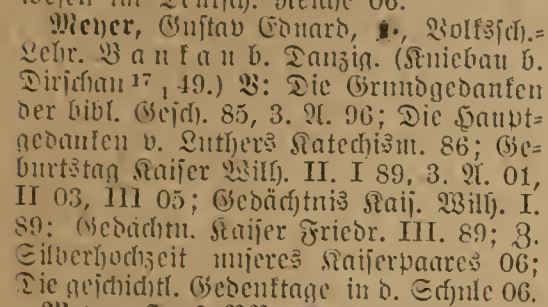 wesen im Deutsch. Reiche 06.
Meyer, Gustav Eduard, Volkssch.=
Lehr. Bankau b. Danzig. (Kniebau b.
Dirschau 17/1 49.) V: Die Grundgedanken
der bibl. Gesch. 85, 3. A. 96; Die Haupt=
gedanken v. Luthers Katechism. 86; Ge=
burtstag Kaiser Wilh. II. I 89, 3. A. 01,
II 03, III 05; Gedächtnis Kais. Wilh. I.
89; Gedächtn. Kaiser Friedr. III. 89; Z.
Silberhochzeit unseres Kaiserpaares 06;
Die geschichtl. Gedenktage in d. Schule 06.